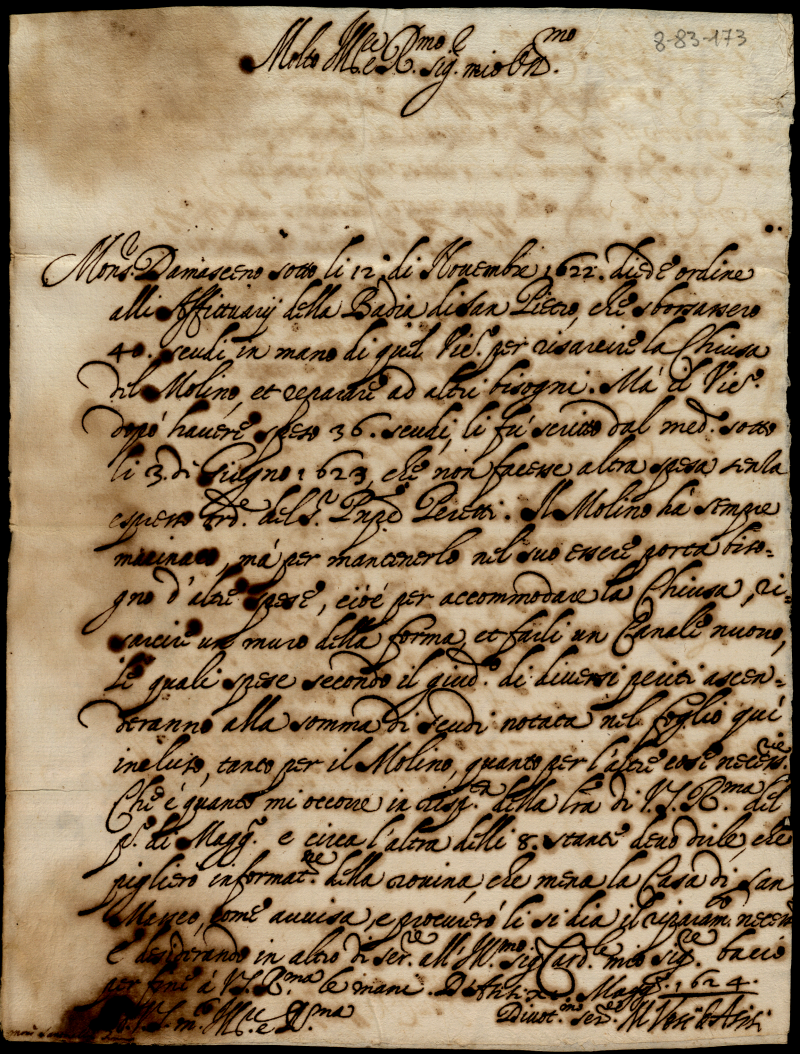 8-83-173
Molto Ill.e et R.mo
sig. mio Oss.mo
Mons.r Damasceno sotto li 12. di Nouembre 1622. diede ordine
alli Affittuarij della Badia di San Pietro, che sborsassero
40. scudi in mano di quel Vic.o per risarcire la Chiusa
del Molino, et reparare ad altri bisogni. Mà il Vic.o
dopò hauere speso 36. scudi, li fù scritto dal med.o sotto
li 3. di Giugno 1623, che non facesse altra spesa senza
espresso ord.e del S.r Prnpe Peretti. Il Molino hà sempre
macinato, mà per mantenerlo nel suo essere porta biso-
gno d'altre spese, cioè per accommodare la Chiusa, ri-
sarcire un muro della forma, et farli un Canale nuouo,
Le quali spese secondo il giud.o di diuersi periti ascen-
deranno alla somma di scudi notata nel foglio quì
incluso, tanto per il Molino, quanto per l'altre cose necess.rie
Che è quanto mi occorre in risp.ta della l'ra di V.S. R.ma del
p.o di Magg.o e circa l'altra delli 8. stante deuo dirle, che
pigliero informat.ne della rouina, che mena la Casa di San
Marco, come auuisa, e procurerò li si dia il riparam.to necess.
E desiderando in altro di ser.re all'Ill.mo sig. Card.le mio sig.re bacio
per fine à V.S. R.ma le mani. D' Magg.o 1624.
Di V.S. m. Ill.e e R.ma
Diuot.mo ser.re